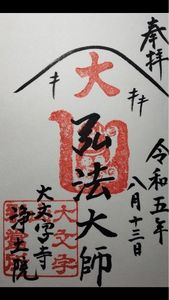 奉拝
令和五年
八月十三日
大
弘法大師
大文字寺
浄土院
大文字